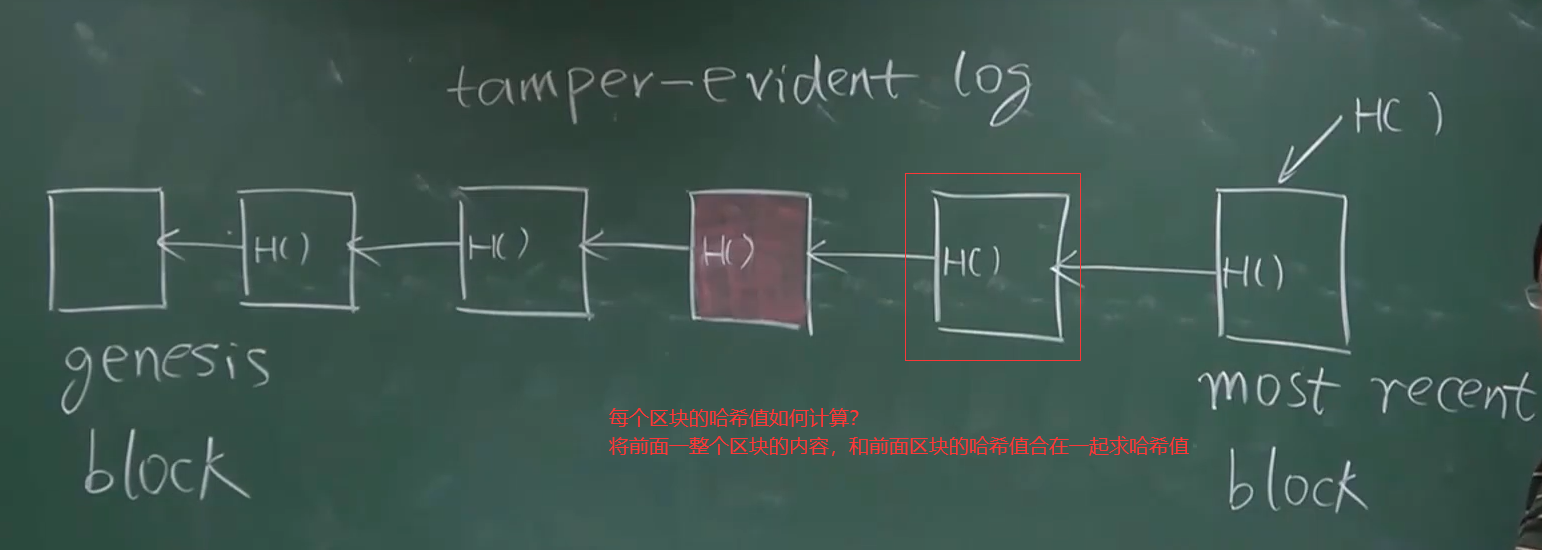 tamper-evident log
H( )
H( )
H( )
H( )
H( )
H( )
genesis
block
most recent
block
每个区块的哈希值如何计算？
将前面一整个区块的内容，和前面区块的哈希值合在一起求哈希值